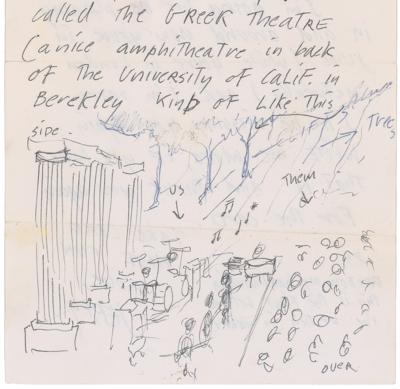 called the GREEK THEATRE
(a nice amphitheatre in back
of The University of Calif. in
Berekley Kind of Like This
side.
Trees
us
Them
OVER